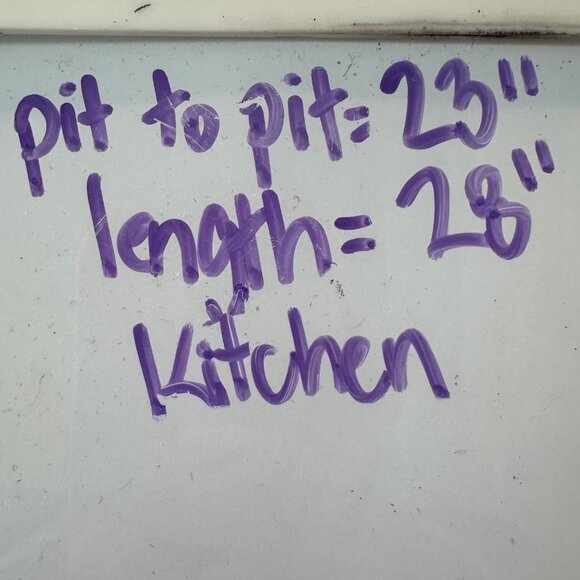 pit to pit= 23"
length= 28"
Kitchen